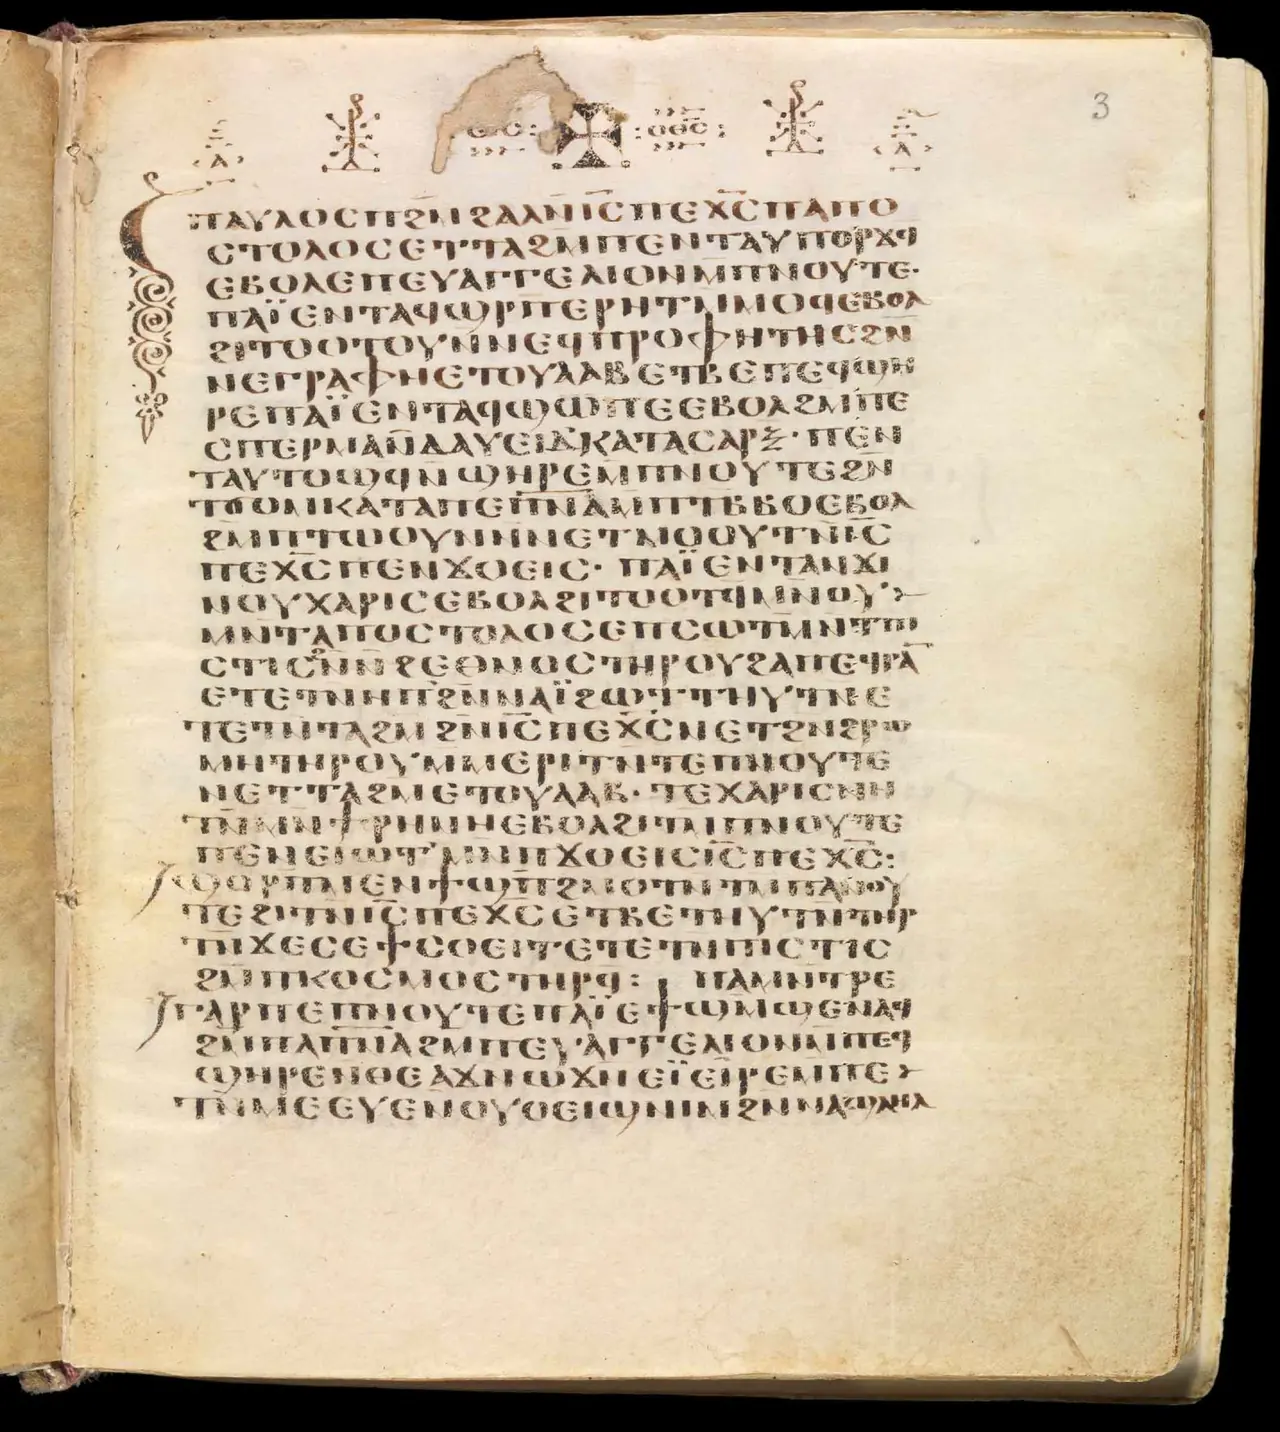 3
ⲁ ⲓ̅ⲥ̅: :ⲟⲑⲥ̅: ⲁ
ⲡⲁⲩⲗⲟⲥⲡϩⲙϩⲁⲗⲛ̅ⲓ̅ⲥ̅ⲡⲉⲭ̅ⲥ̅ⲡⲁⲡⲟ
ⲥⲧⲟⲗⲟⲥⲉⲧⲧⲁϩⲙ̅ⲡⲉⲛⲧⲁⲩⲡⲟⲣϫϥ
ⲉⲃⲟⲗⲉⲡⲉⲩⲁⲅⲅⲉⲗⲓⲟⲛⲙ̅ⲡⲛⲟⲩⲧⲉ·
ⲡⲁⲓ̈ⲉⲛⲧⲁϥϣⲣ̅ⲡⲉⲣⲏⲧⲙ̅ⲙⲟϥⲉⲃⲟⲗ
ϩⲓⲧⲟⲟⲧⲟⲩⲛ̅ⲛⲉϥⲡⲣⲟⲫⲏⲧⲏⲥϩⲛ̅
ⲛⲉⲅⲣⲁⲫⲏⲉⲧⲟⲩⲁⲁⲃⲉⲧⲃⲉⲡⲉϥϣⲏ
ⲣⲉⲡⲁⲓ̈ⲉⲛⲧⲁϥϣⲱⲡⲉⲉⲃⲟⲗϩⲙ̅ⲡⲉ
ⲥⲡⲉⲣⲙⲁⲛ̅ⲇⲁⲩⲉⲓⲇ̅ⲕⲁⲧⲁⲥⲁⲣⲝ·ⲡⲉⲛ
ⲧⲁⲩⲧⲟϣϥⲛ̅ϣⲏⲣⲉⲙ̅ⲡⲛⲟⲩⲧⲉϩⲛ̅
ⲧϭⲟⲙⲕⲁⲧⲁⲡⲉⲡ̅ⲛ̅ⲁ̅ⲙ̅ⲡⲧⲃ̅ⲃⲟⲉⲃⲟⲗ
ϩⲙ̅ⲡⲧⲱⲟⲩⲛⲛ̅ⲛⲉⲧⲙⲟⲟⲩⲧⲛ̅ⲓ̅ⲥ̅
ⲡⲉⲭ̅ⲥ̅ⲡⲉⲛϫⲟⲉⲓⲥ·ⲡⲁⲓ̈ⲉⲛⲧⲁⲛϫⲓ
ⲛⲟⲩⲭⲁⲣⲓⲥⲉⲃⲟⲗϩⲓⲧⲟⲟⲧϥ̅ⲙⲛ̅ⲟⲩ
ⲙⲛ̅ⲧⲁⲡⲟⲥⲧⲟⲗⲟⲥⲉⲡⲥⲱⲧⲙ̅ⲛ̅ⲧⲡⲓ
ⲥⲧⲓⲥϩⲛ̅ⲛ̅ϩⲉⲑⲛⲟⲥⲧⲏⲣⲟⲩϩⲁⲡⲉϥⲣⲁⲛ̅
ⲉⲧⲉⲧⲛ̅ⲏⲡϩⲛ̅ⲛⲁⲓ̈ϩⲱⲧⲧⲏⲩⲧⲛ̅ⲉ
ⲧⲉⲧⲛ̅ⲧⲁϩⲙ̅ϩⲛ̅ⲓ̅ⲥ̅ⲡⲉⲭ̅ⲥ̅ⲛⲉⲧϩⲛ̅ϩⲣⲱ
ⲙⲏⲧⲏⲣⲟⲩⲙ̅ⲙⲉⲣⲓⲧⲛ̅ⲧⲉⲡⲛⲟⲩⲧⲉ
ⲛⲉⲧⲧⲁϩⲙ̅ⲉⲧⲟⲩⲁⲁⲃ·ⲧⲉⲭⲁⲣⲓⲥⲛⲏ
ⲧⲛ̅ⲙⲛ̅ϯⲣⲏⲛⲏⲉⲃⲟⲗϩⲓⲧⲙ̅ⲡⲛⲟⲩⲧⲉ
ⲡⲉⲛⲉⲓⲱⲧ'ⲙⲛ̅ⲡϫⲟⲉⲓⲥⲓ̅ⲥ̅ⲡⲉⲭ̅ⲥ̅:
ϣⲟⲣⲡ̅ⲙⲉⲛϯϣⲡ̅ϩⲙⲟⲧⲛ̅ⲧⲙ̅ⲡⲁⲛⲟⲩ
ⲧⲉϩⲓⲧⲛ̅ⲓ̅ⲥ̅ⲡⲉⲭ̅ⲥ̅ⲉⲧⲃⲉⲧⲏⲩⲧⲛ̅ⲧⲏⲣ
ⲧⲛ̅ϫⲉⲥⲉϯⲥⲟⲉⲓⲧⲉⲧⲉⲧⲛ̅ⲡⲓⲥⲧⲓⲥ
ϩⲙ̅ⲡⲕⲟⲥⲙⲟⲥⲧⲏⲣϥ: ⲡⲁⲙⲛ̅ⲧⲣⲉ
ⲅⲁⲣⲡⲉⲡⲛⲟⲩⲧⲉⲡⲁⲓ̈ⲉϯϣⲙ̅ϣⲉⲛⲁϥ
ϩⲙ̅ⲡⲁⲡ̅ⲛ̅ⲁ̅ϩⲙ̅ⲡⲉⲩⲁⲅⲅⲉⲗⲓⲟⲛⲙ̅ⲡⲉϥ
ϣⲏⲣⲉⲛ̅ⲑⲉⲁϫⲛ̅ⲱϫⲛ̅ⲉⲓ̈ⲉⲓⲣⲉⲙ̅ⲡⲉ
ⲧⲛ̅ⲙⲉⲉⲩⲉⲛ̅ⲟⲩⲟⲉⲓϣⲛⲓⲙϩⲛ̅ⲛⲁϣⲗⲏⲗ